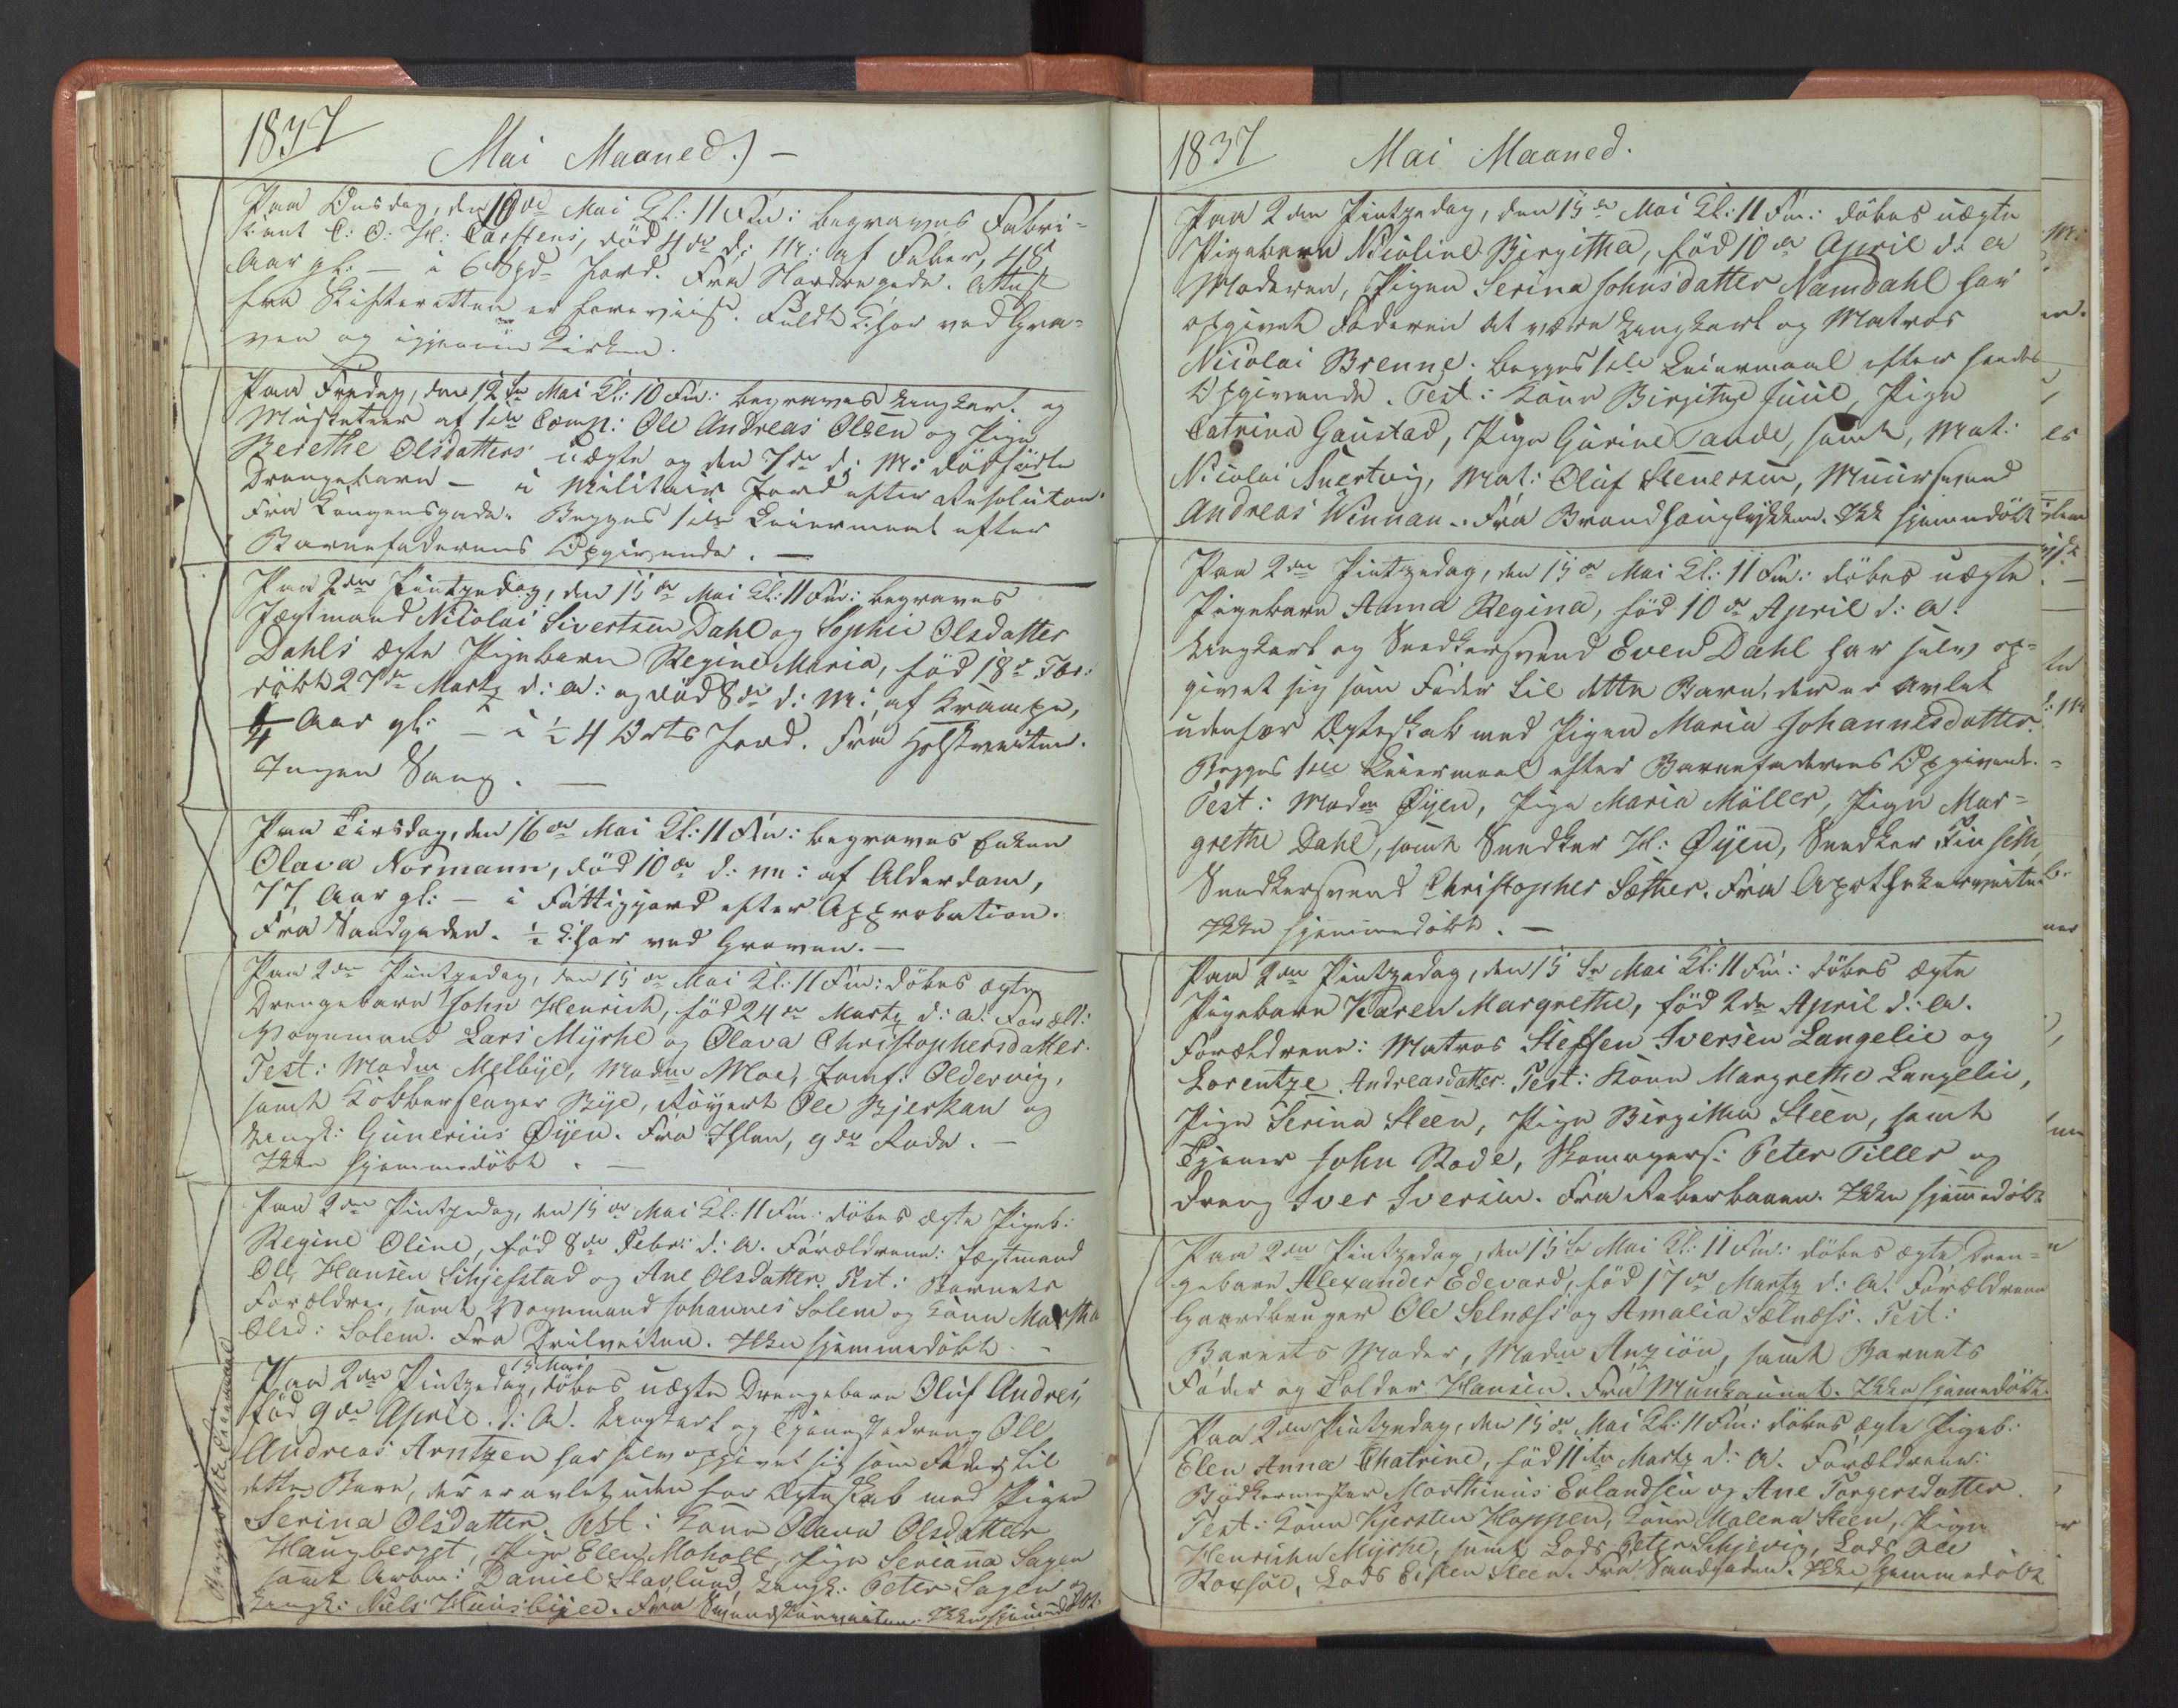 1837
Mai Maaned.) -
Paa Onsdag, den 10de Mai Kl: 11 Fm: begraves Fabri-
kant C: O: H: Carstens, död 4de d: M: af Feber, 48
Aar gl: - i 6 Spd Jord. Fra Nordregade. Attest
fra Skifteretten er foreviist. Fuldt Chor ved Gra-
ven og igjennem Kirken.
Paa Fredag, den 12te Mai Kl: 10 Fm: begraves Ungkarl og
Musketeer af 1ste Comp: Ole Andreas Olsen og Pige
Berethe Olsdatters uægte og den 7de d: M: dödfödte
Drengebarn - i Militair Jord efter Resolution.
Fra Kongensgade. Begges 1ste Leiermaal efter
Barnefaderens Opgivende. -
Paa 2den Pintzedag, den 15de Mai Kl: 11 Fm: begraves
Jægtmand Nicolai Sivertsen Dahl og Sophie Olsdatter
Dahls ægte Pigebarn Regine Maria, föd 18de Febr:
döbt 27de Martz d: A: og död 8de d: M: af Krampe,
1/4 Aar gl: - i 1/2 4 Orts Jord. Fra Holstveiten.
Ingen Sang. -
Paa Tirsdag, den 16de Mai Kl: 11 Fm: begraves Enken
Olava Normann, död 10de d: m: af Alderdom,
77 Aar gl: - i Fattigjord efter Approbation.
Fra Sandgaden. 1/2 Chor ved Graven. -
Paa 2den Pintzedag, den 15de Mai Kl: 11 Fm: döbes ægte
Drengebarn John Henrich, föd 24de Martz d: A. Foræld:
Vognmand Lars Myrhe og Olava Christophersdatter.
Test: Madm Melbye, Madm Moe, Jomf: Oldervig,
samt Kobberslager Bye, Röyert Ole Bjerkan og
Ungk: Gunerius Öyen. Fra Ihlen, 9de Rode. -
Ikke hjemmedöbt. -
Paa 2den Pintzedag, den 15de Mai Kl: 11 Fm: döbes ægte Pigeb:
Regine Oline, föd 8de Febr: d: A. Forældrene: Jægtmand
Ole Hansen Schjefstad og Ane Olsdatter. Test: Barnets
Forældre, samt Vognmand Johannes Solem og Kone Martha
Olsd: Solem. Fra Drilveiten. Ikke hjemmedöbt. -
Paa 2den Pintzedag, 15 Mai döbes uægte Drengebarn Oluf Andrei,
föd 9de April d: A. Ungkarl og Tjenestedreng Ole
Andreas Arntzen har selv opgivet sig som Fader til
dette Barn, der er avlet uden for Ægteskab med Pigen
Serina Olsdatter. Test: Kone Olava Olsdatter
Haugberget, Pige Elen Moholt, Pige Serianna Sagen
samt Arbm: Daniel Stavlund, Ungk: Peter Sagen og
Ungk: Niels Huusbyed. Fra Ikke hjemmedöbt.
Begges 1ste Leiermaal
1837
Mai Maaned.
Paa 2den Pintzedag, den 15de Mai Kl: 11 Fm: döbes uægte
Pigebarn Nicoline Birgitha, föd 10de April d: A
Moderen, Pigen Serina Johnsdatter Namdahl har
opgivet Faderen at være Ungkarl og Matros
Nicolai Brenne. Begges 1ste Leiermaal efter hendes
Opgivende. Test: Kone Birgithe Juul, Pige
Catrina Gaustad, Pige Gurine Tande, samt, Mat:
Nicolai Suertvig, Mat: Oluf Stenersen, Muursvend
Andreas Winnan. Fra Brandhauglykken. Ikke hjemmedöbt
Paa 2den Pintzedag, den 15de Mai Kl: 11 Fm: döbes uægte
Pigebarn Anna Regina, föd 10de April d: A:
Ungkarl og Snedkersvend Even Dahl har selv op-
givet sig som Fader til dette Barn, der er avlet
udenfor Ægteskab med Pigen Maria Johannesdatter.
Begges 1ste Leiermaal efter Barnefaderens Opgivende. -
Test: Madm Öyen, Pige Maria Möller, Pige Mar-
grethe Dahl, samt Snedker H: Öyen, Snedker
Snedkersvend Christopher Sæther. Fra Apothekerveiten
Ikke hjemmedöbt. -
Paa 2den Pintzedag, den 15de Mai Kl: 11 Fm: döbes ægte
Pigebarn Karen Margrethe, föd 2den April d: A.
Forældrene: Matros Steffen Iversen Langelie og
Lorentze Andreasdatter. Test: Kone Margrethe Langelie,
Pige Serina Steen, Pige Birgitha Steen, samt
Tjener John Rode, Skomagers: Peter Tiller og
Dreng Iver Iversen. Fra Reberbanen. Ikke hjemmedöbt
Paa 2den Pintzedag, den 15de Mai Kl: 11 Fm: döbes ægte Dren-
gebarn Alexander Edevard, föd 17de Martz d: A. Forældrene
Gaardbruger Ole Selnæss og Amalia Sælnæss. Test:
Barnets Moder, Madm Anziön, samt Barnets
Fader og Tolder Hansen. Fra Munkaunet. Ikke hjemmedöbt.
Paa 2den Pintzedag, den 15de Mai Kl: 11 Fm: döbes ægte Pigeb:
Elen Anna Chatrine, föd 11te Martz d: A. Forældrene:
Bödkermester Morthinus Erlandsen og Ane Torgersdatter.
Test: Kone Kjersten Hoppen, Kone Malena Steen, Pige
Henrichte Myrhe, samt Lods Peter Schjevig, Lods Ole
Roxsöe, Lods Eisten Steen. Fra Sandgaden. Ikke hjemmedöbt